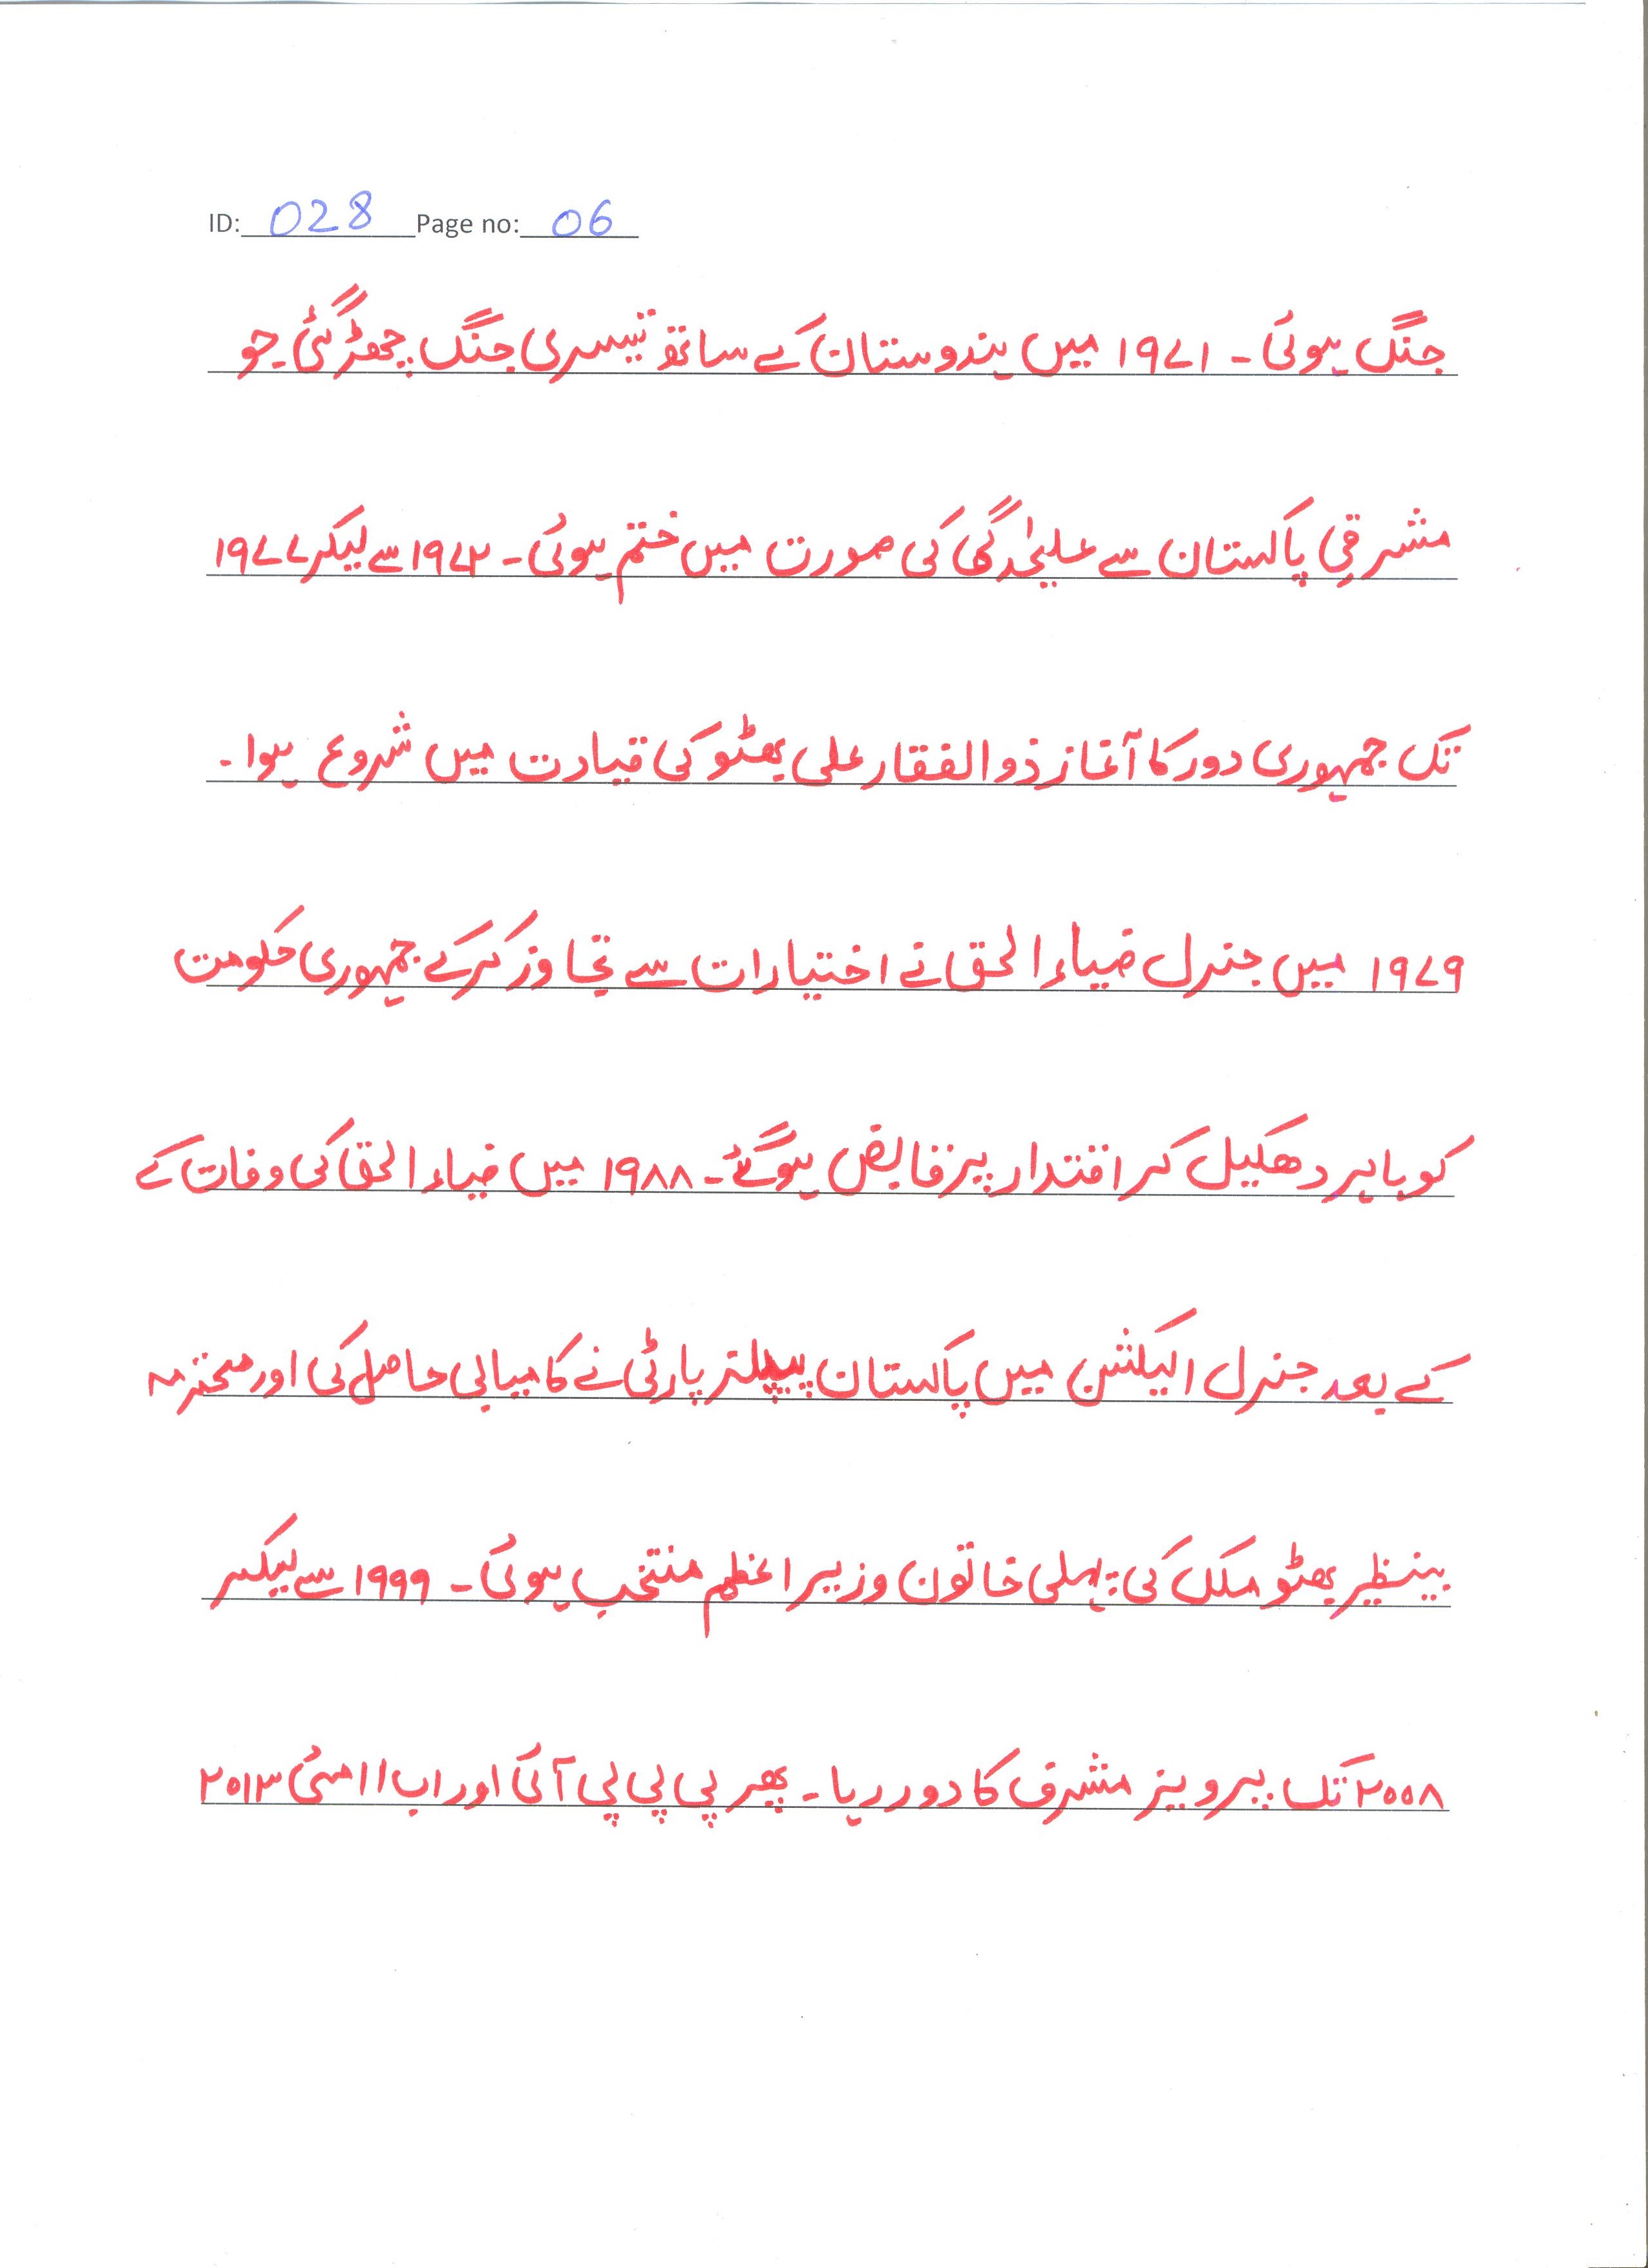 ID: 028 Page no: 06
جنگ ہوئی۔ ۱۹۷۱ میں ہندوستان کے ساتھ تیسری جنگ چھڑ گئی جو
مشرقی پاکستان سے علیٰحدگی کی صورت میں ختم ہوئی۔ ۱۹۷۲ سے لیکر ۱۹۷۷
تک جمہوری دور کا آغاز ذوالفقار علی بھٹو کی قیادت میں شروع ہوا۔
۱۹۷۹ میں جنرل ضیاء الحق نے اختیارات سے تجاوز کرکے جمہوری حکومت
کو باہر دھکیل کر اقتدار پر قابض ہوگئے۔ ۱۹۸۸ میں ضیاء الحق کی وفات کے
کے بعد جنرل الیکشن میں پاکستان پیپلز پارٹی نے کامیابی حاصل کی اور محترمہ
بینظیر بھٹو ملک کی پہلی خاتون وزیراعظم منتخب ہوئی۔ ۱۹۹۹ سے لیکر
۲۰۰۸ تک پرویز مشرف کا دور رہا۔ پھر پی پی پی آئی اور اب ۱۱ مئی ۲۰۱۳